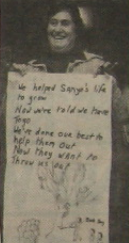 We helped Sanya's life
to grow
Now we're told we have
to go
We've done our best to
help them out
Now they what to
throw us out